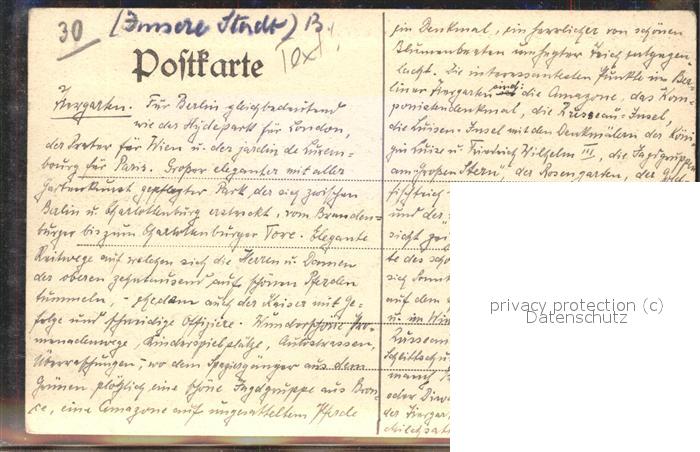 30 (Innere Stadt) B
Text!
Postkarte
Tiergarten. Für Berlin gleichbedeutend
wie der Hydepark für London,
der Prater für Wien u. der jardin de Luxem-
bourg für Paris. Großer eleganter mit aller
Gartenkunst gepflegter Park, der sich zwischen
Berlin u. Charlottenburg erstreckt, vom Branden=
burger bis zum Charlottenburger Tore. Elegante
Reitwege auf welchen sich die Herren u. Damen
der oberen zehntausend auf schönen Pferden
tummeln, - ehedem auch der Kaiser mit Ge-
folge und schneidige Offiziere. Wunderschöne Pro-
menadenwege, Kinderspielplätze, Autostrassen,
Überraschungen, - wo dem Spaziergänger aus dem
Grünen plötzlich eine schöne Jagdgruppe aus Bron-
ce, eine Amazone auf ungesatteltem Pferde
ein Denkmal, ein herrlicher von schönen
Blumenbeeten umhegter Teich entgegen
lacht. Die interessantesten Punkte im Ber-
liner Tiergarten sind: die Amazone, das Kom-
ponistendenkmal, die Rousseau-Insel,
die Luisen-Insel mit den Denkmälern der Köni-
gin Luise u. Friedrich Wilhelm III, die Jagdgruppe
am Großen Stern, der Rosengarten, der Gold-
fischteich
und der
sicht
te des
sich
auf dem
u. im Win
Rousseau
Schlittsch
manch
oder
der Tiergar